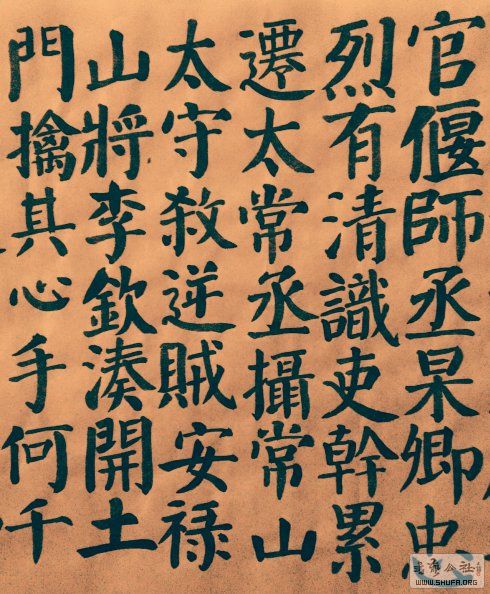 官偃師丞杲卿忠
烈有清識吏幹累
遷太常丞攝常山
太守殺逆賊安禄
山將李欽湊開土
門擒其心手何千
WWW.SHUFA.ORG